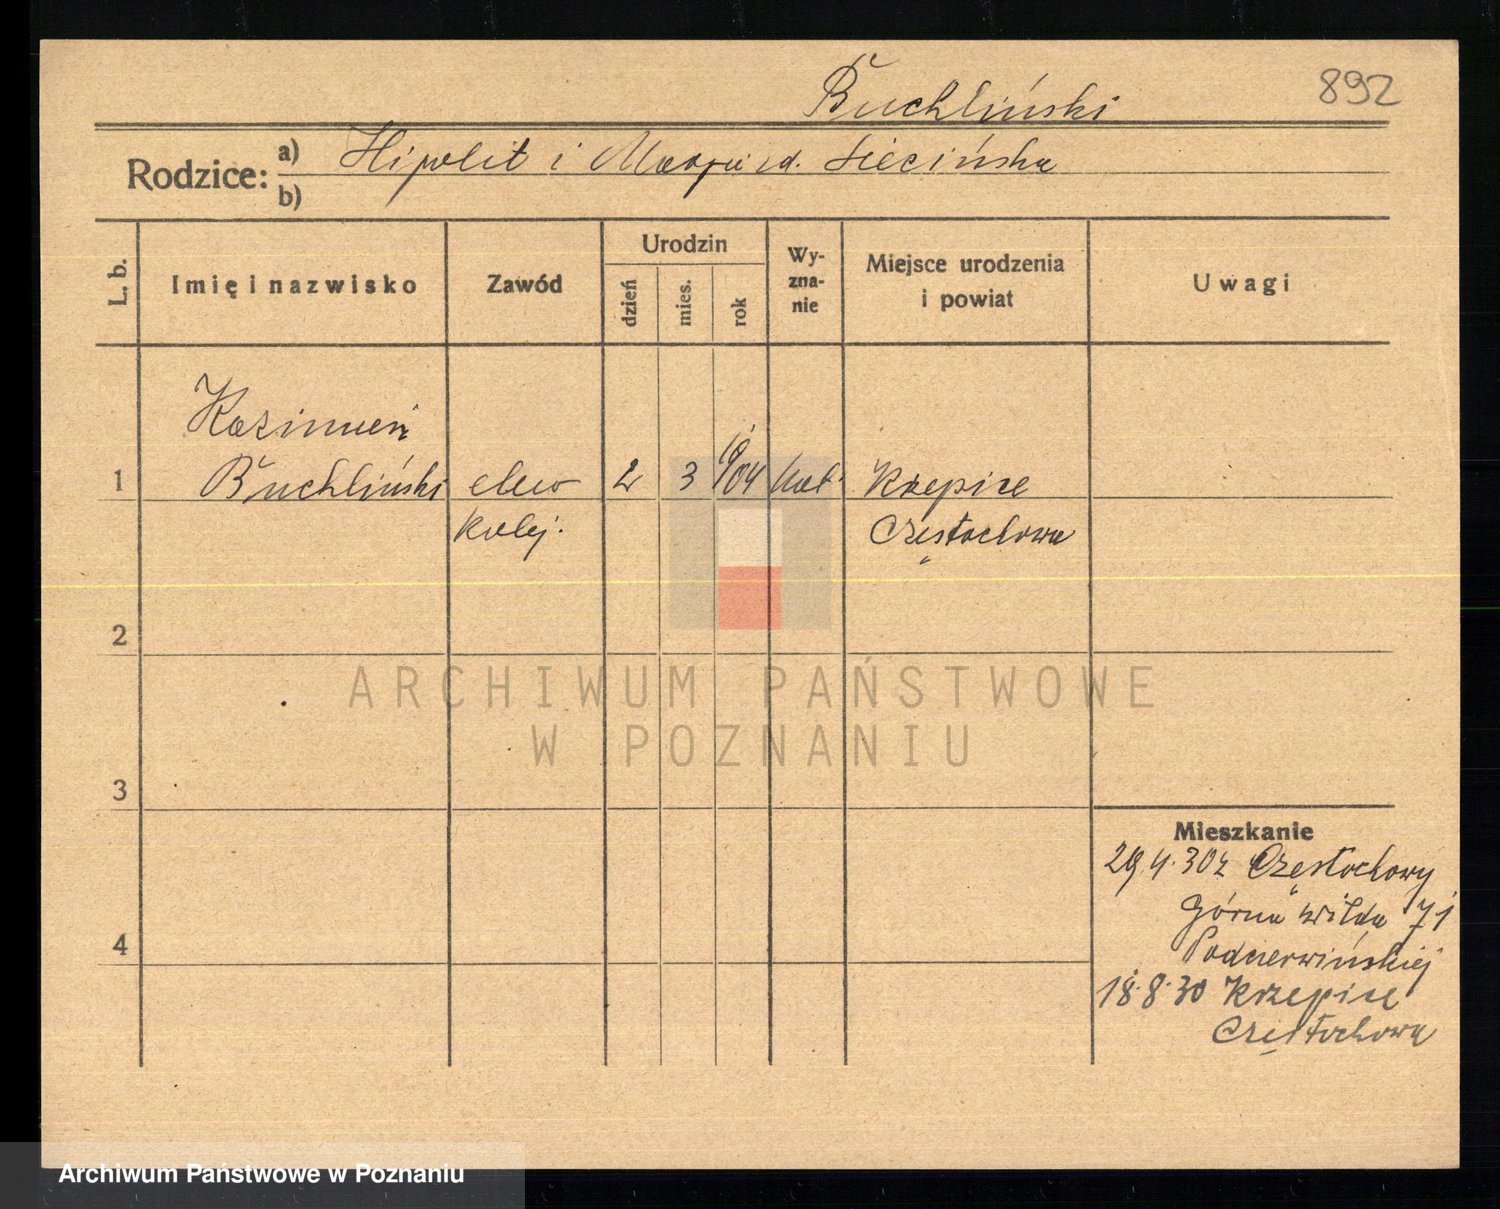 Buchliński
892
Rodzice: a) Hipolit i Marya zd. Siecińska
b)
L. b.
Imię i nazwisko
Zawód
Urodzin
dzień
mies.
rok
Wy-
zna-
nie
Miejsce urodzenia
i powiat
Uwagi
Kazimierz
1 Buchliński elew 2 3 1904 kat. Krzepice
kolej. Częstochowa
2
3
4
Mieszkanie
29.4.30 z Częstochowy
Górna Wilda 71
18.8.30 Krzepice
Częstochowa
ARCHIWUM PAŃSTWOWE
W POZNANIU
Archiwum Państwowe w Poznaniu